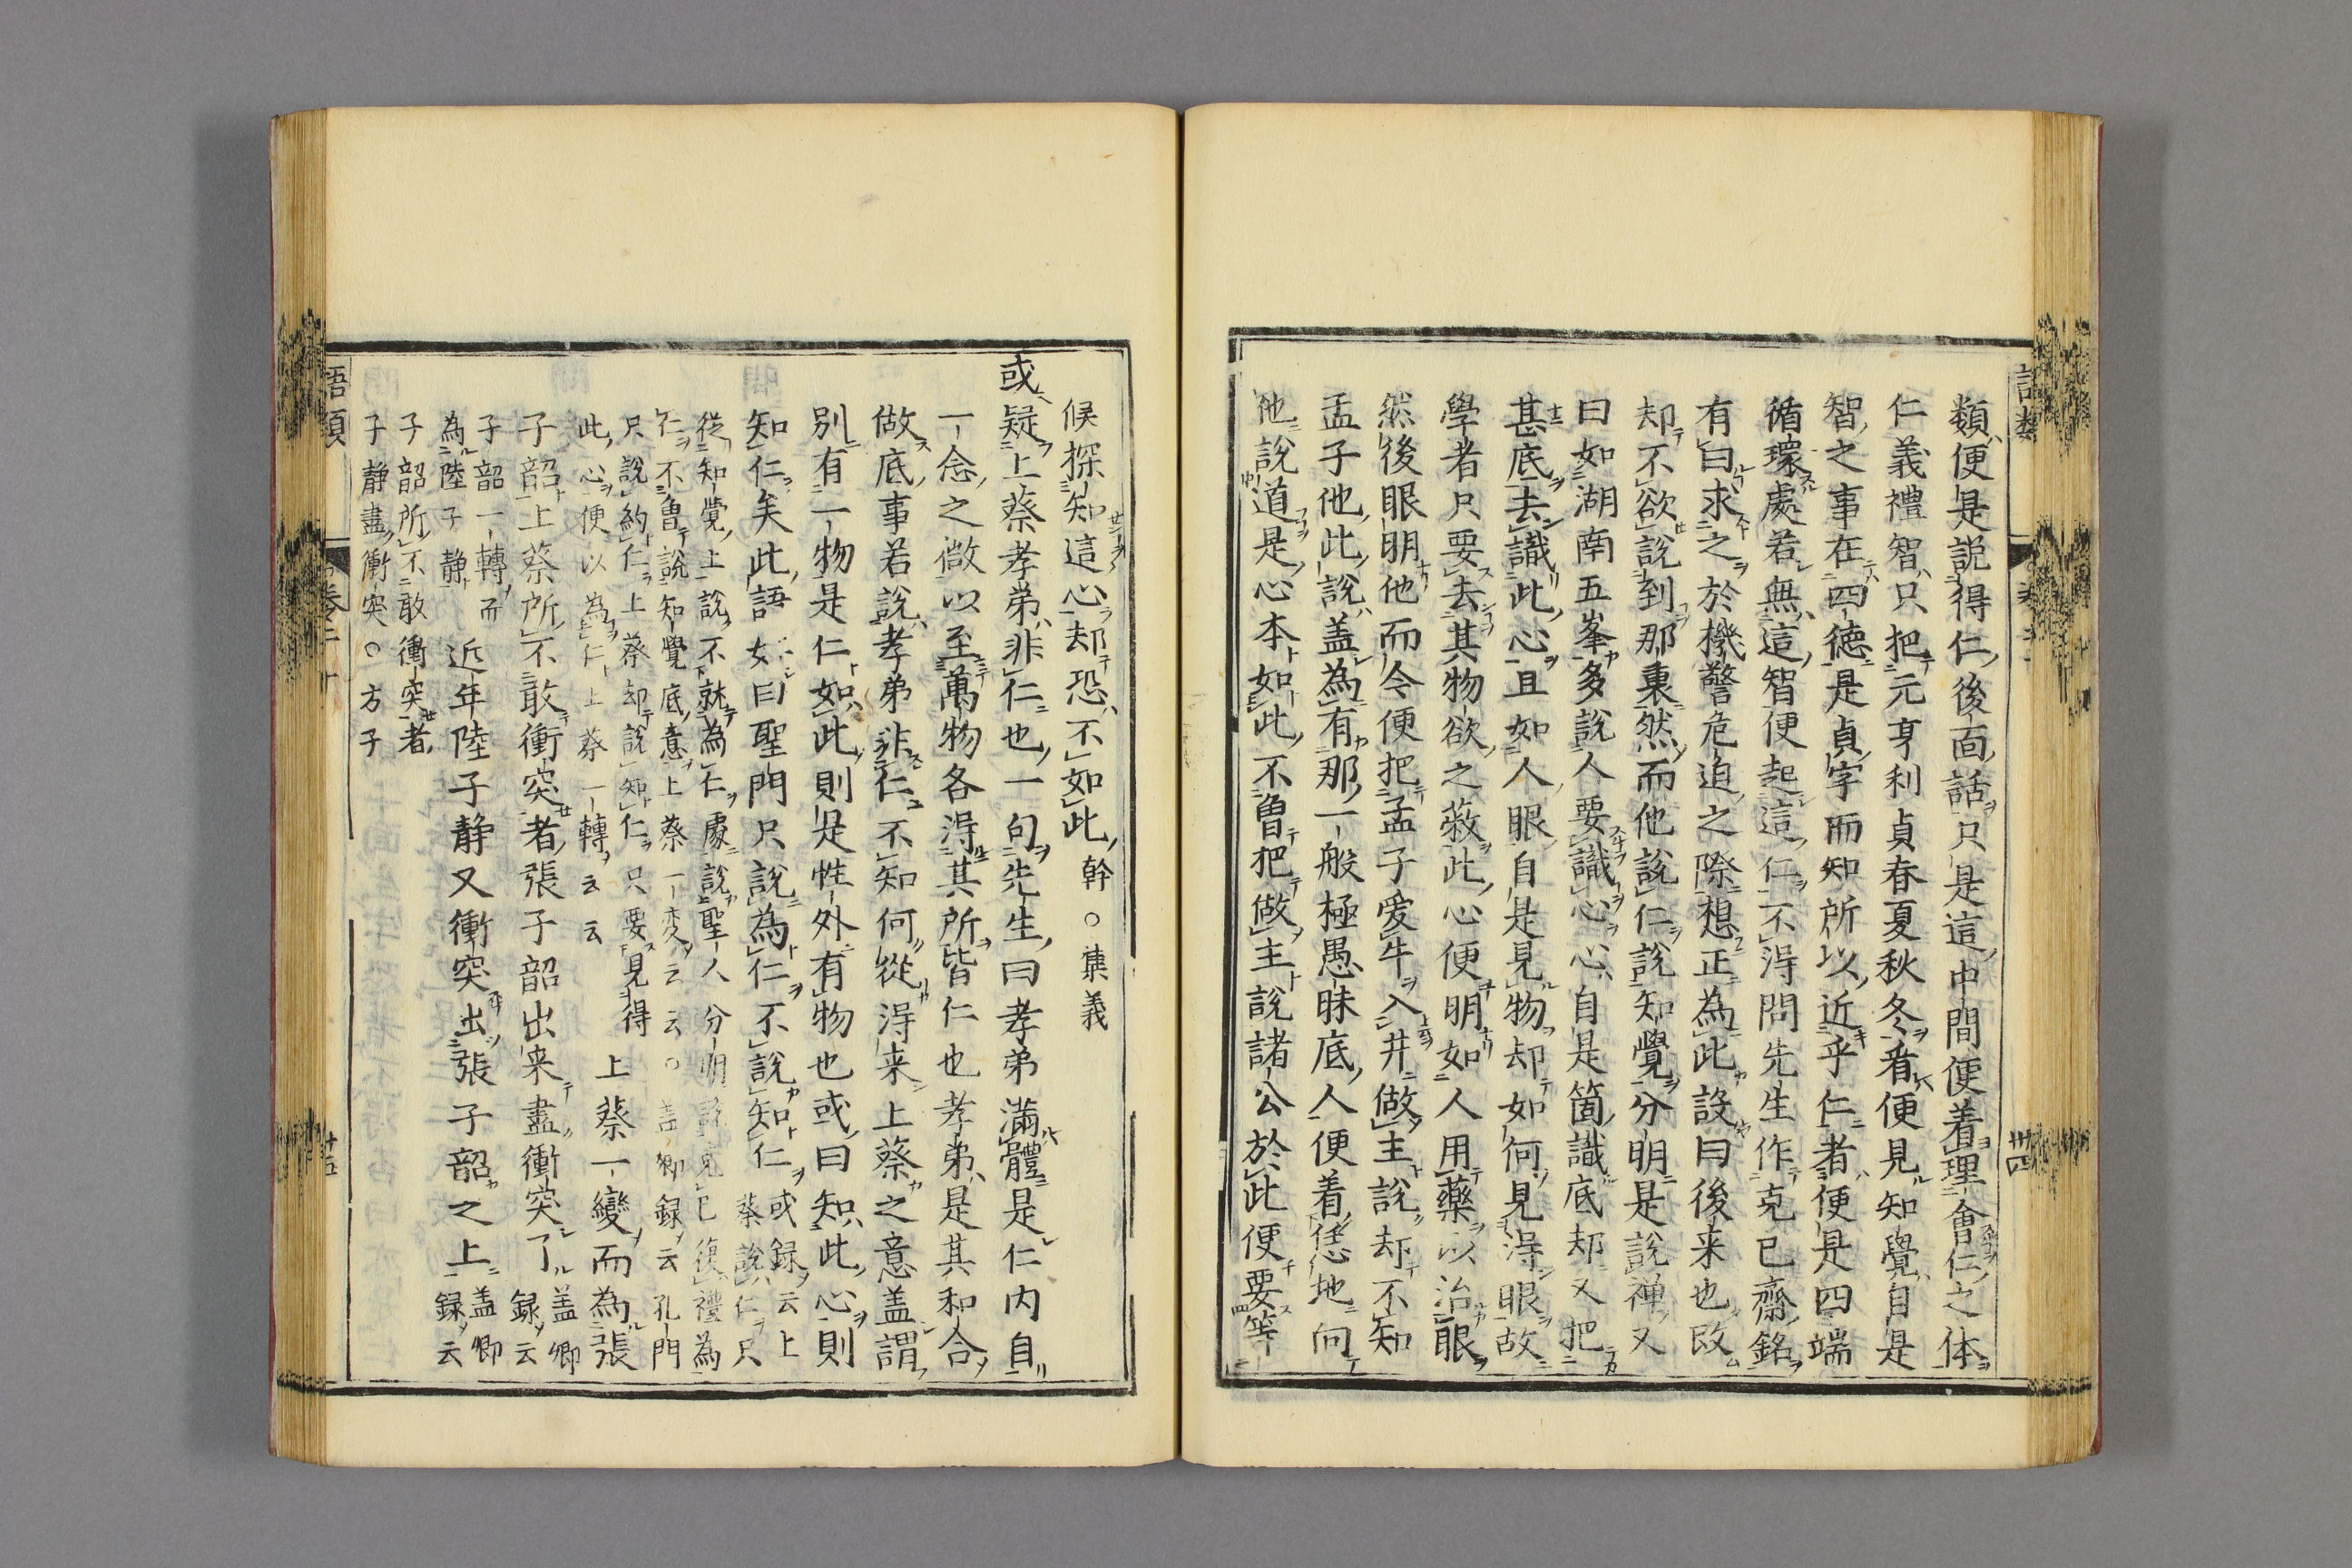 類便是説得仁後面話只是這中間便着理會仁之体
仁義禮智只把元亨利貞春夏秋冬看便見知覺自是
智之事在四德是貞字而知所以近乎仁者便是四端
循環處若無這智便起這仁不得問先生作克已齋銘
有曰求之於機警危迫之際想正為此設曰後来也改
却不欲說到那裏然而他說仁說知覺分明是說禅又
曰如湖南五峯多說人要識心心自是箇識底却又把
甚底去識此心且如人眼自是見物却如何見得眼故
學者只要去其物欲之蔽此心便明如人用藥以治眼
然後眼明他而今便把孟子愛牛入井做主說却不知
孟子他此說盖為有那一般極愚昧底人便着恁地向
他說道是心本如此不曾把做主說諸公於此便要等
候探知這心却恐不如此 幹○集義
或疑上蔡孝弟非仁也一句先生曰孝弟滿體是仁内自
一念之微以至萬物各得其所皆仁也孝弟是其和合
做底事若說孝弟非仁不知何從得来上蔡之意盖謂
別有一物是仁如此則是性外有物也或曰知此心則
知仁矣此語如何曰聖門只說為仁不說知仁 或録云上
蔡說仁只
從知覺上說不就為仁處說聖人分明說克已復禮為
仁不曾說知覺底意上蔡一変云云○盖卿録云孔門
只說約仁上蔡却說知仁只要見得
此心便以為仁上蔡一轉云云
上蔡一變而為張
子韶上蔡所不敢衝突者張子韶出来盡衝突了 盖卿
録云
子韶一轉而
為陸子静
近年陸子静又衝突出張子韶之上 盖卿
録云
子韶所不敢衝突者
子静盡衝突○方子